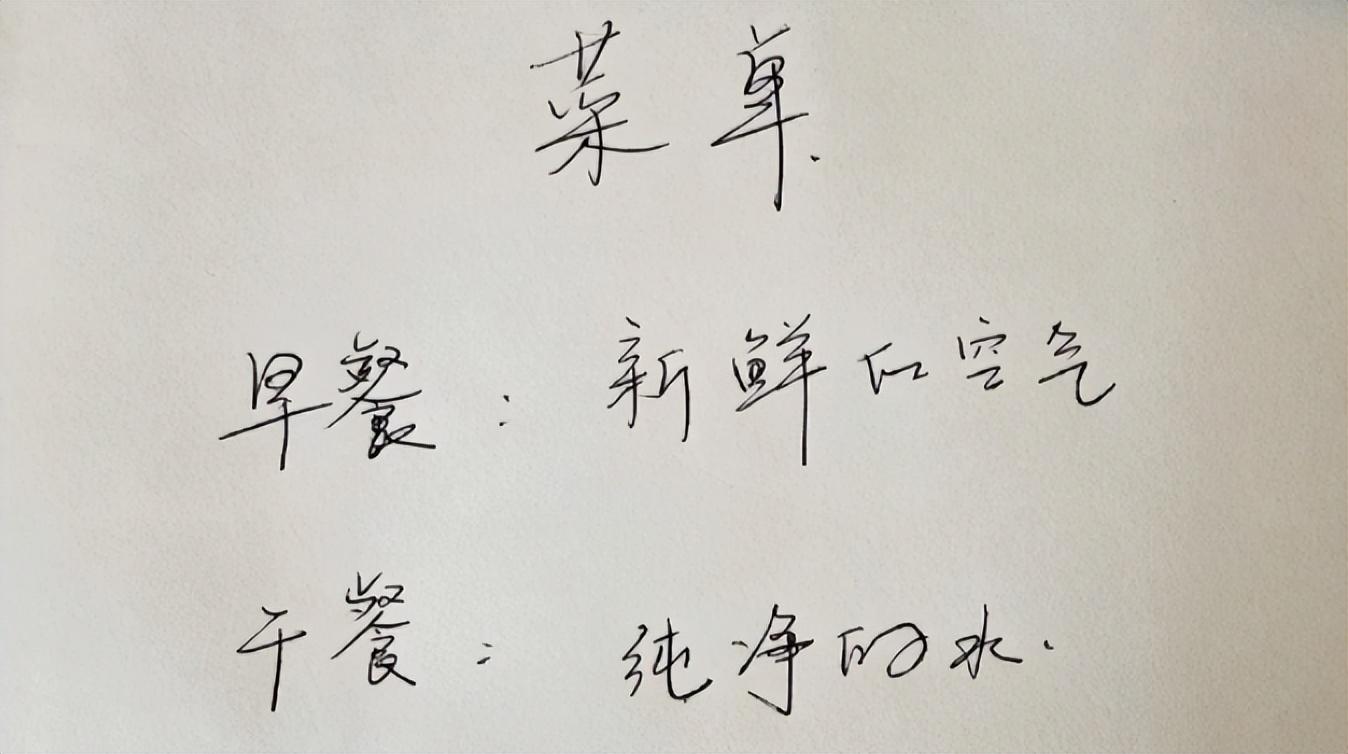 菜单.
早餐：新鲜的空气
午餐：纯净的水.